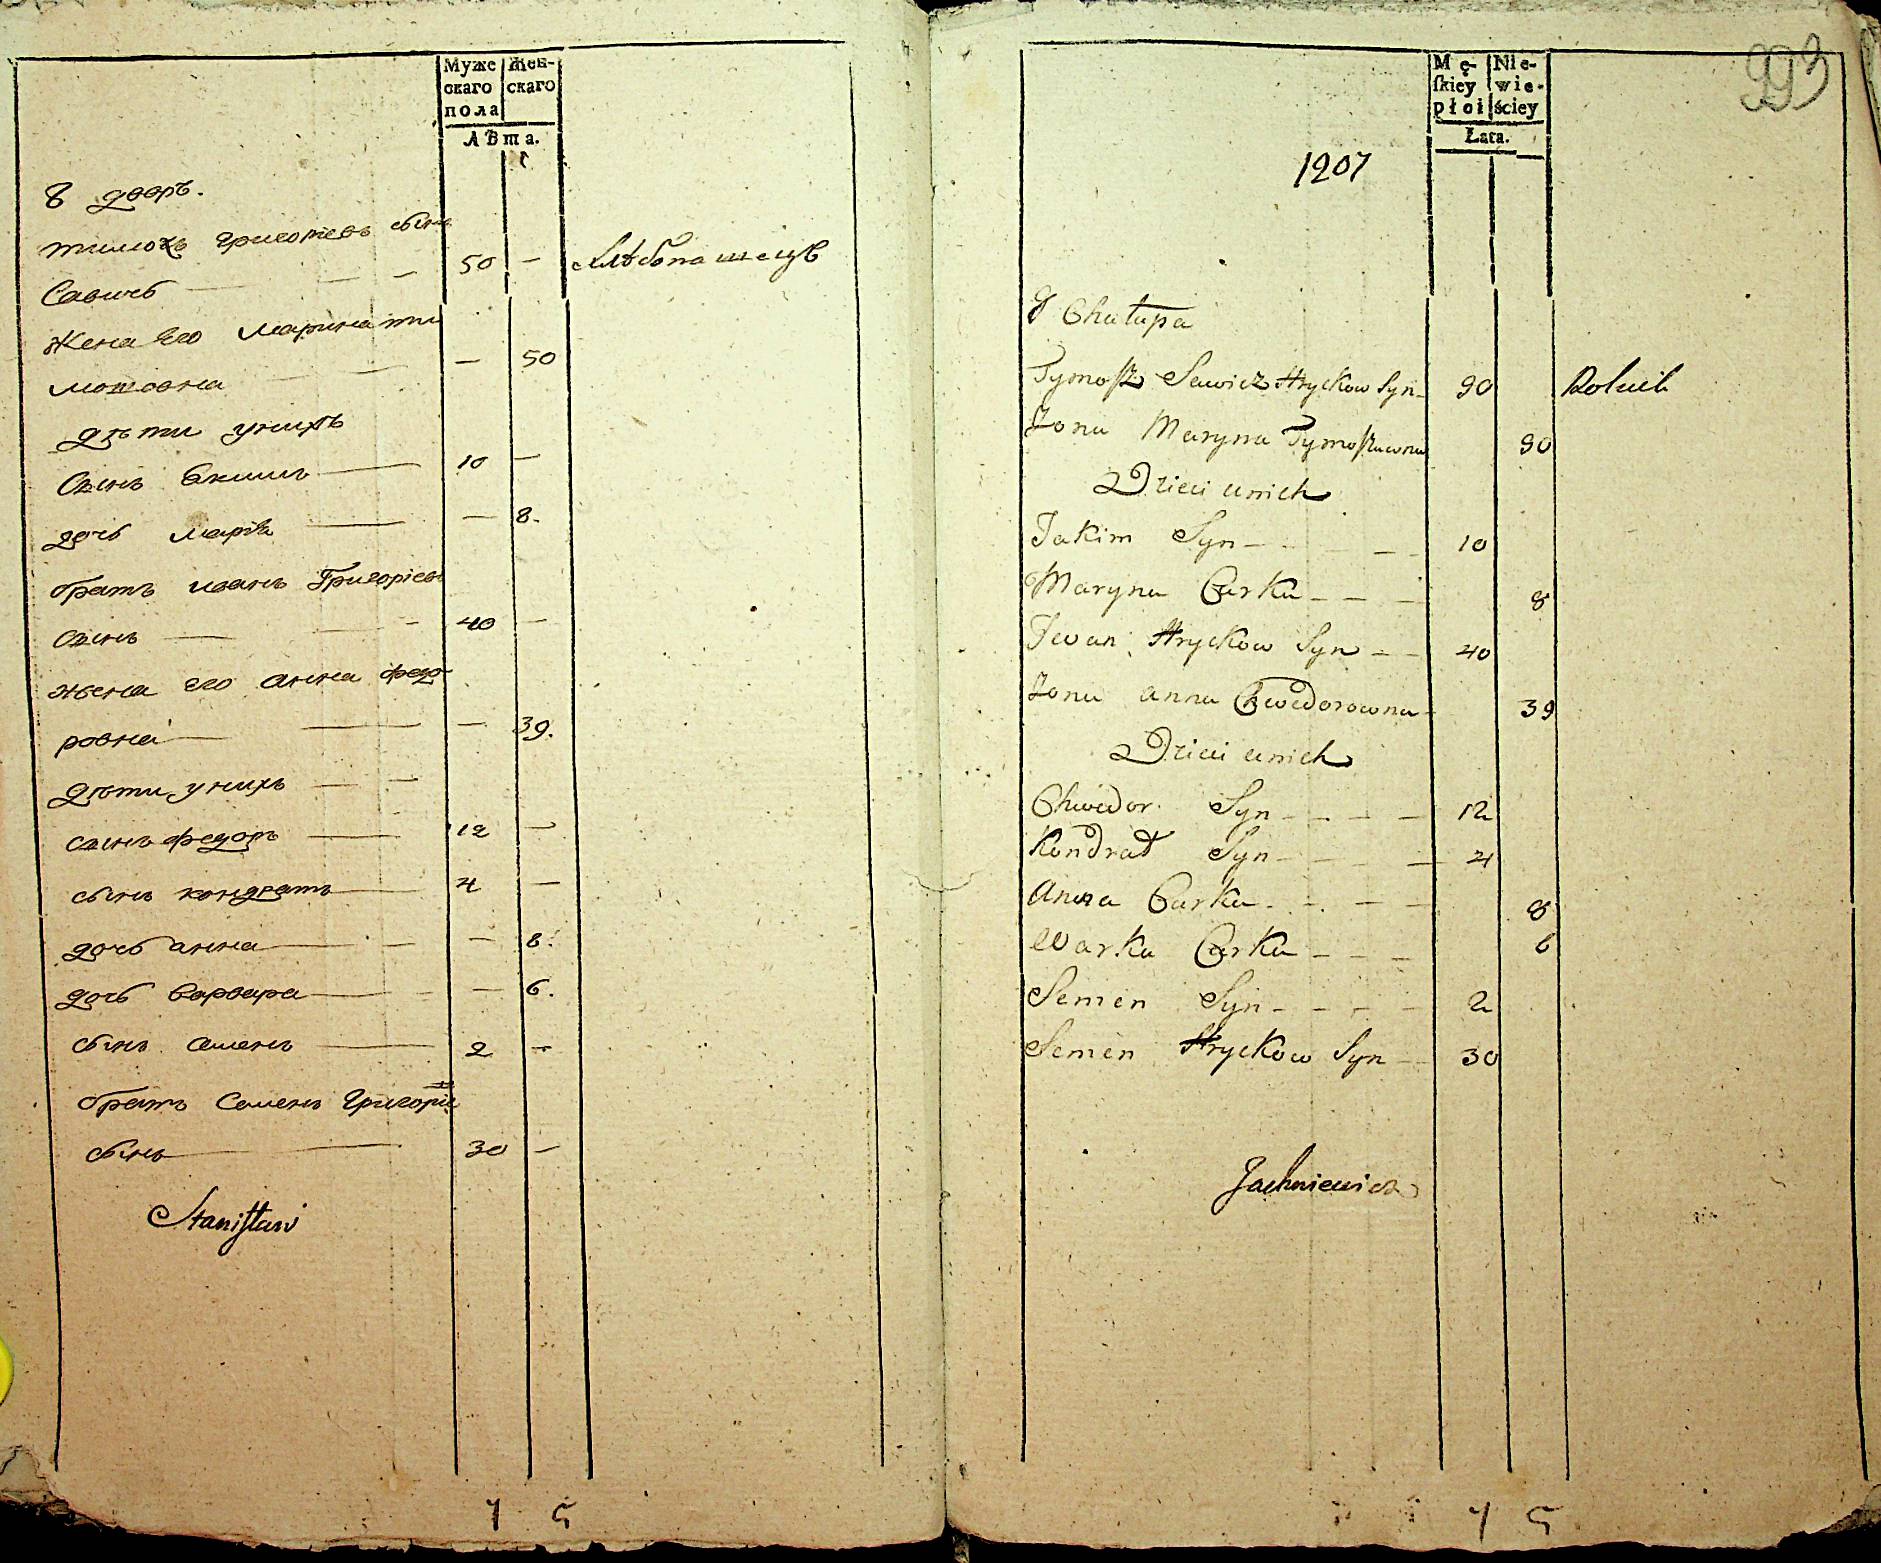 Муже Жен-
скаго скаго
пола
Лѣта.
8 дворъ.
тимохъ григорiевъ сынъ
Савичь — — — 50 —
хлѣбопашецъ
Жена Его Марина ти
мошовна — — — 50
дѣти унихъ
Сынъ Екимъ — 10 —
дочь Марiя — — 8.
братъ иванъ Григорiевъ
Сынъ — — — 40 —
жена его анна федо
ровна — — — 39.
дѣти унихъ — —
сынъ федоръ — 12 —
сынъ кондратъ — 4 —
дочь анна — — — 8.
дочь варвара — — — 6.
сынъ семенъ — 2 —
братъ Семенъ Григорiе
сынъ — — 30 —
Stanisław
1 5
993
Mę- Nie-
ſkiey wie-
płci ściey
Łata.
1207
8 Chałupa
Tymosz Sawicz Hryckow Syn — 90 Rolnik
Zona Maryna Tymoszowna 90
Dzieci unich
Jakim Syn — — — — 10
Maryna Curka — — — 8
Iwan Hryckow Syn — — 40
Zona anna Chwedorowna — 39
Dzieci unich
Chwedor Syn — — — — 12
Kondrat Syn — — — — 4
Anna Curka — — — — 8
Warka Curka — — — 6
Semen Syn — — — — 2
Semen Hryckow Syn — 30
Jachniewicz
1 5